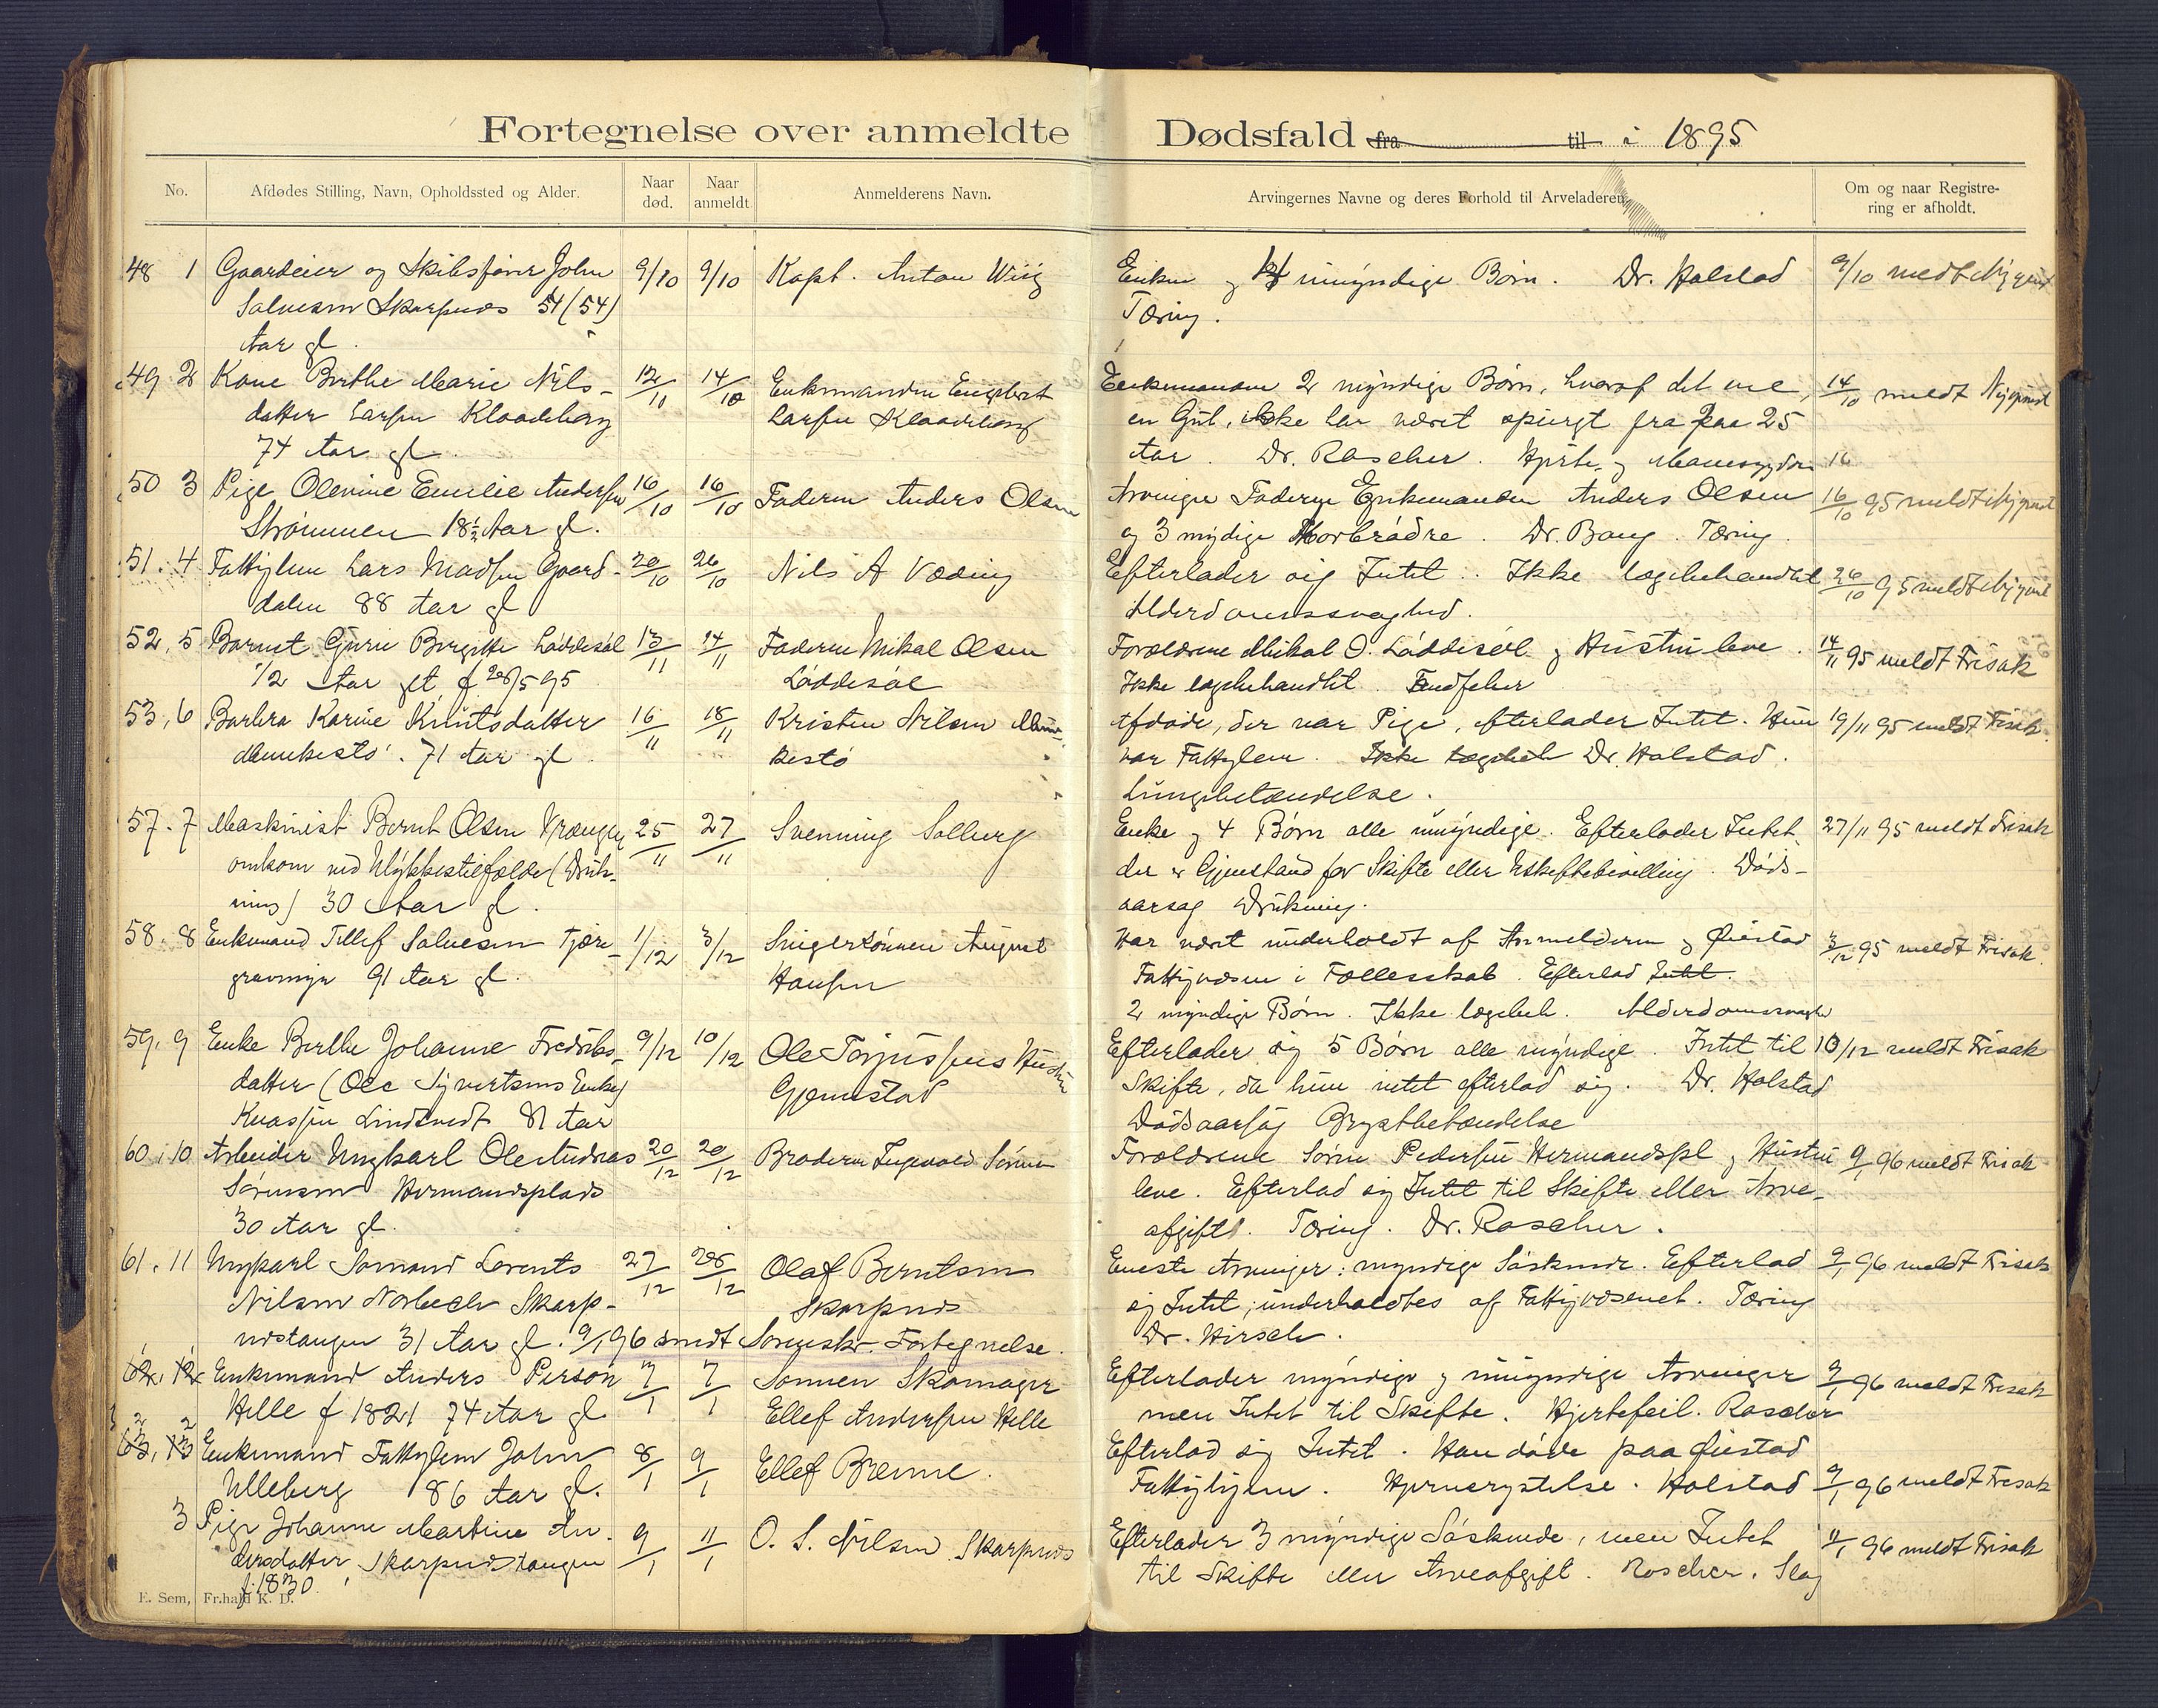 Fortegnelse over anmeldte Dødsfald fra til i 1895
No.
Afdødes Stilling, Navn, Opholdssted og Alder.
Naar død.
Naar anmeldt
Anmelderens Navn.
Arvingernes Navne og deres Forhold til Arveladeren.
Om og naar Registre-
ring er afholdt.
48 1 Gaardeier og Skibsfører John 9/10 9/10 Kapt. Anton Wiig Enken og 4 umyndige Børn. Dr. Holstad 9/10 meldt
Salvesen Skarpnes 54 (54) Tæring.
Aar gl.
49 2 Kone Berthe Marie Nils- 12/10 14/10 Enkemanden Engebret Enkemanden 2 myndige Børn, hvoraf det ene, 14/10 meldt
datter Larsen Klaadeborg Larsen Klaadeborg en Gut, ikke har været spurgt fra paa 25
74 Aar gl. Aar. Dr. Roscher. Hjerte- og 16
50 3 Pige Olevine Emilie Andersen 16/10 16/10 Faderen Anders Olsen Arvinger Faderen Enkemanden Anders Olsen 16/10 95 meldt
Strømmen 18½ Aar gl. og 3 mydige Morbrødre. Dr. Bang. Tæring.
51. 4 Fattiglem Lars Madsen Gaard- 20/10 26/10 Nils A Væding Efterlader sig Intet. Ikke lægebehandlet 26/10 95 meldt
dalen 88 Aar gl Alderdomssvaghed.
52, 5 Barnet Guri Birgitte Løddesøl 13/11 14/11 Faderen Mikal Olsen Forældrene Mikal O. Løddesøl og Hustru leve. 14/11 95 meldt Frisak
1/2 Aar glt f 28/5 95 Løddesøl Ikke lægebehandlet.
53, 6 Barbra Karine Knutsdatter 16/11 18/11 Kristen Nilsen Afdøde, der var Pige, efterlader Intet. Hun 19/11 95 meldt Frisak.
71 Aar gl var Fattiglem. Ikke lægebeh Dr. Holstad.
Lungebetændelse.
57. 7 Maskinist Bernt Olsen 25/11 27/11 Svenning Solberg Enke og 4 Børn alle umyndige. Efterlader Intet 27/11 95 meldt Frisak
omkom ved Ulykkestilfælde (Druk- der er Gjenstand for Skifte eller Uskiftebevilling. Døds-
ning) 30 Aar gl. aarsag Drukning.
58. 8 Enkemand Tellef Salvesen Tjære- 1/12 3/12 Svigersønnen August Har været underholdt af Anmelderen og Øiestad 3/12 95 meldt Frisak.
gravmyr 91 Aar gl. Hansen Fattigvæsen i Fællesskab. Efterlod Intet.
2 myndige Børn. Ikke lægebeh.
59. 9 Enke Berthe Johanne Fredriks- 9/12 10/12 Ole Torjussens Hustru Efterlader sig 5 Børn alle myndige. Intet til 10/12 meldt Frisak
datter (Ole Syvertsens Enke) Gjennestad Skifte, da hun intet efterlod sig. Dr. Holstad
Lindtveit 81 Aar Dødsaarsag Brystbetændelse
60, 10 Arbeider Ungkarl Ole Andreas 20/12 20/12 Broderen Ingevald Sørensen Forældrene Søren Pedersen Hermandspl og Hustru 9/1 96 meldt Frisak
Sørensen Hermandsplads leve. Efterlod sig Intet til Skifte eller Arve-
30 Aar gl. afgift. Tæring. Dr. Roscher.
61. 11 Ungkarl Sømand Lorents 27/12 28/12 Olaf Berntsen Eneste Arvinger: myndige Søskende. Efterlod 9/1 96 meldt Frisak
Nilsen Norbech Skarp- Skarpnes sig Intet; underholdtes af Fattigvæsenet. Tæring
nestangen 31 Aar gl. 9/1 96 sendt Sorenskr. Fortegnelse. Dr. Hirsch.
62. 12 1 1 Enkemand Anders Person 7/1 7/1 Sønnen Skomager Efterlader myndige og umyndige Arvinger 9/1 96 meldt Frisak
Helle f 1821 74 Aar gl Ellef Andersen Helle men Intet til Skifte. Hjertefeil. Roscher
63. 13 2 2 Enkemand Fattiglem John 8/1 9/1 Ellef Brenne. Efterlod sig Intet. Han døde paa Øiestad
Ulleberg 86 Aar gl. Fattighjem. Hjernerystelse. Holstad 9/1 96 meldt Frisak
3 Pige Johanne Martine An- 9/1 11/1 O. S. Nilsen Skarpnes Efterlader 3 myndige Søskende, men Intet 11/1 96 meldt Frisak
dersdatter, Skarpnestangen til Skifte eller Arveafgift. Roscher. Slag
f. 1830.
E. Sem, Fr.hald K. D.